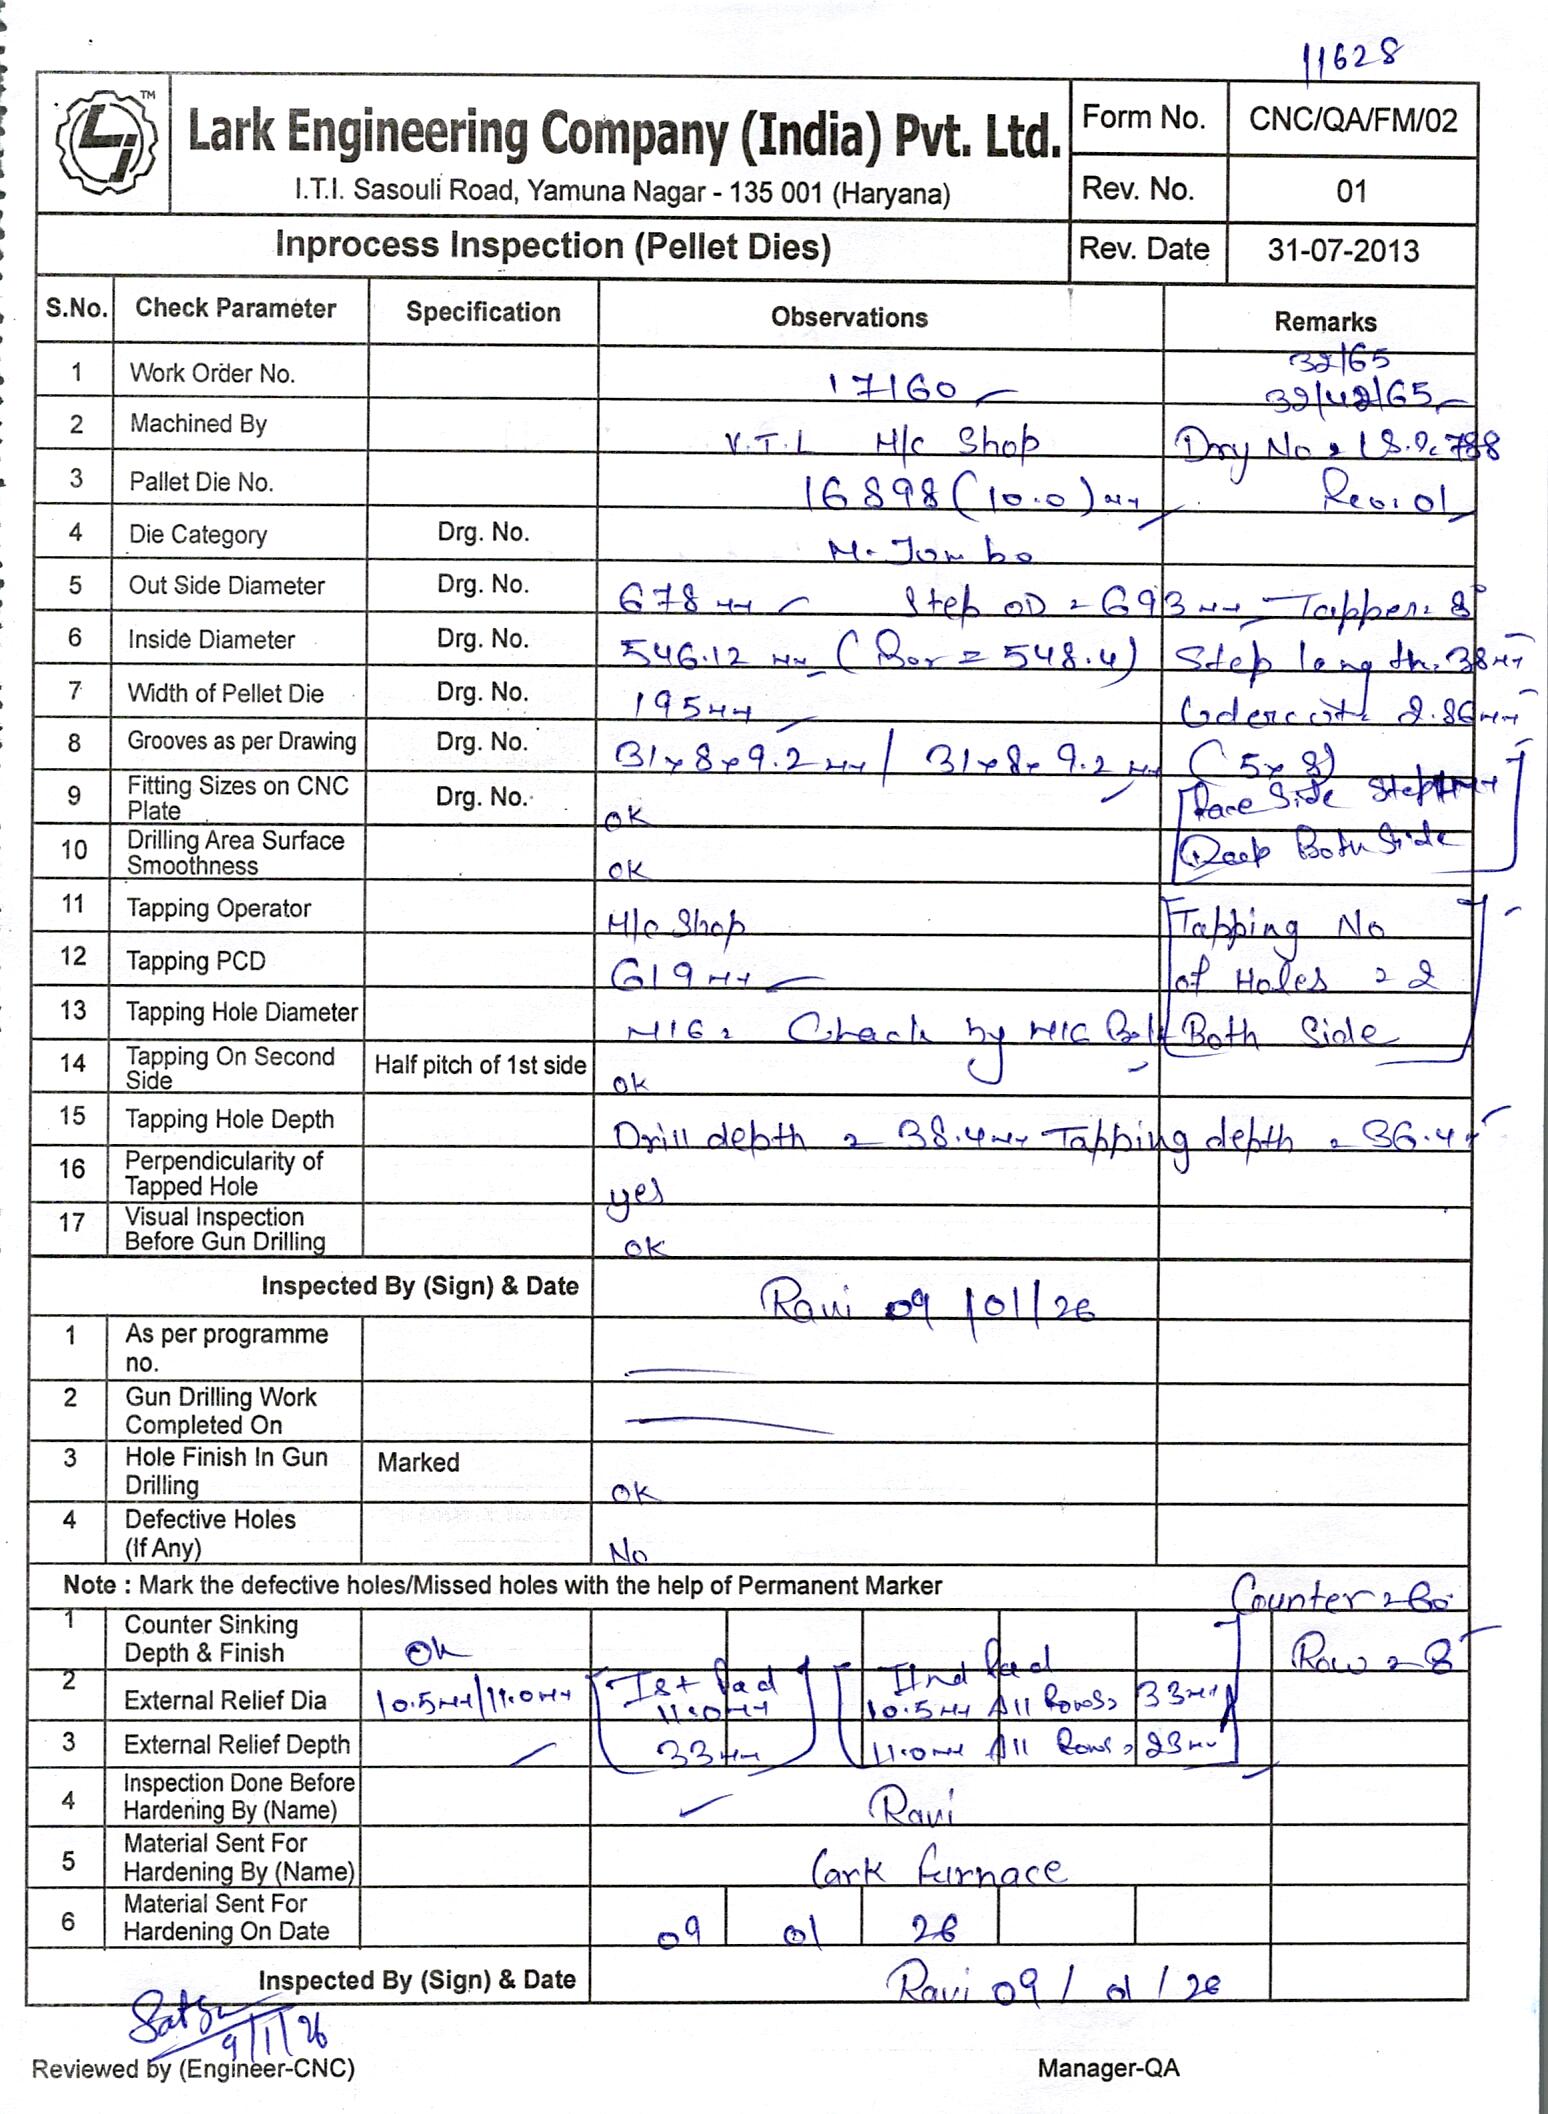 11628
LJ TM
Lark Engineering Company (India) Pvt. Ltd.
I.T.I. Sasouli Road, Yamuna Nagar - 135 001 (Haryana)
Form No. CNC/QA/FM/02
Rev. No. 01
Inprocess Inspection (Pellet Dies) Rev. Date 31-07-2013
S.No. Check Parameter Specification Observations Remarks
32/65
1 Work Order No. 17160 32/42/65
2 Machined By V.T.L M/c Shop Drg No = 788
3 Pallet Die No. 16898 (10.0) Rev: 01
4 Die Category Drg. No. M. Jumbo
5 Out Side Diameter Drg. No. 678 mm Step OD = 693 mm Tapper = 8°
6 Inside Diameter Drg. No. 546.12 mm (Bor = 548.4) Step length = 38 mm
7 Width of Pellet Die Drg. No. 195 mm 2.86 mm
8 Grooves as per Drawing Drg. No. 31x8x9.2 mm / 31x8x9.2 mm (5x8)
9 Fitting Sizes on CNC Plate Drg. No. ok Side Step
10 Drilling Area Surface Smoothness ok Both Side
11 Tapping Operator M/c Shop Tapping No
12 Tapping PCD 619 mm of Holes = 2
13 Tapping Hole Diameter M16 = Chack by M16 Bolt Both Side
14 Tapping On Second Side Half pitch of 1st side ok
15 Tapping Hole Depth Drill depth = 38.4 mm Tapping depth = 36.4
16 Perpendicularity of Tapped Hole yes
17 Visual Inspection Before Gun Drilling ok
Inspected By (Sign) & Date Ravi 09/01/26
1 As per programme no.
2 Gun Drilling Work Completed On
3 Hole Finish In Gun Drilling Marked ok
4 Defective Holes (If Any) No
Note : Mark the defective holes/Missed holes with the help of Permanent Marker
Counter = 60°
1 Counter Sinking Depth & Finish Ok Row = 8
Ist Pad IInd Pad
2 External Relief Dia 10.5 mm/11.0 mm 11.0 mm 10.5 mm All Rows = 33 mm
3 External Relief Depth 33 mm 11.0 mm All Rows = 23 mm
4 Inspection Done Before Hardening By (Name) Ravi
5 Material Sent For Hardening By (Name) Lark Furnace
6 Material Sent For Hardening On Date 09 01 26
Inspected By (Sign) & Date Ravi 09/01/26
9/1/26
Reviewed by (Engineer-CNC) Manager-QA